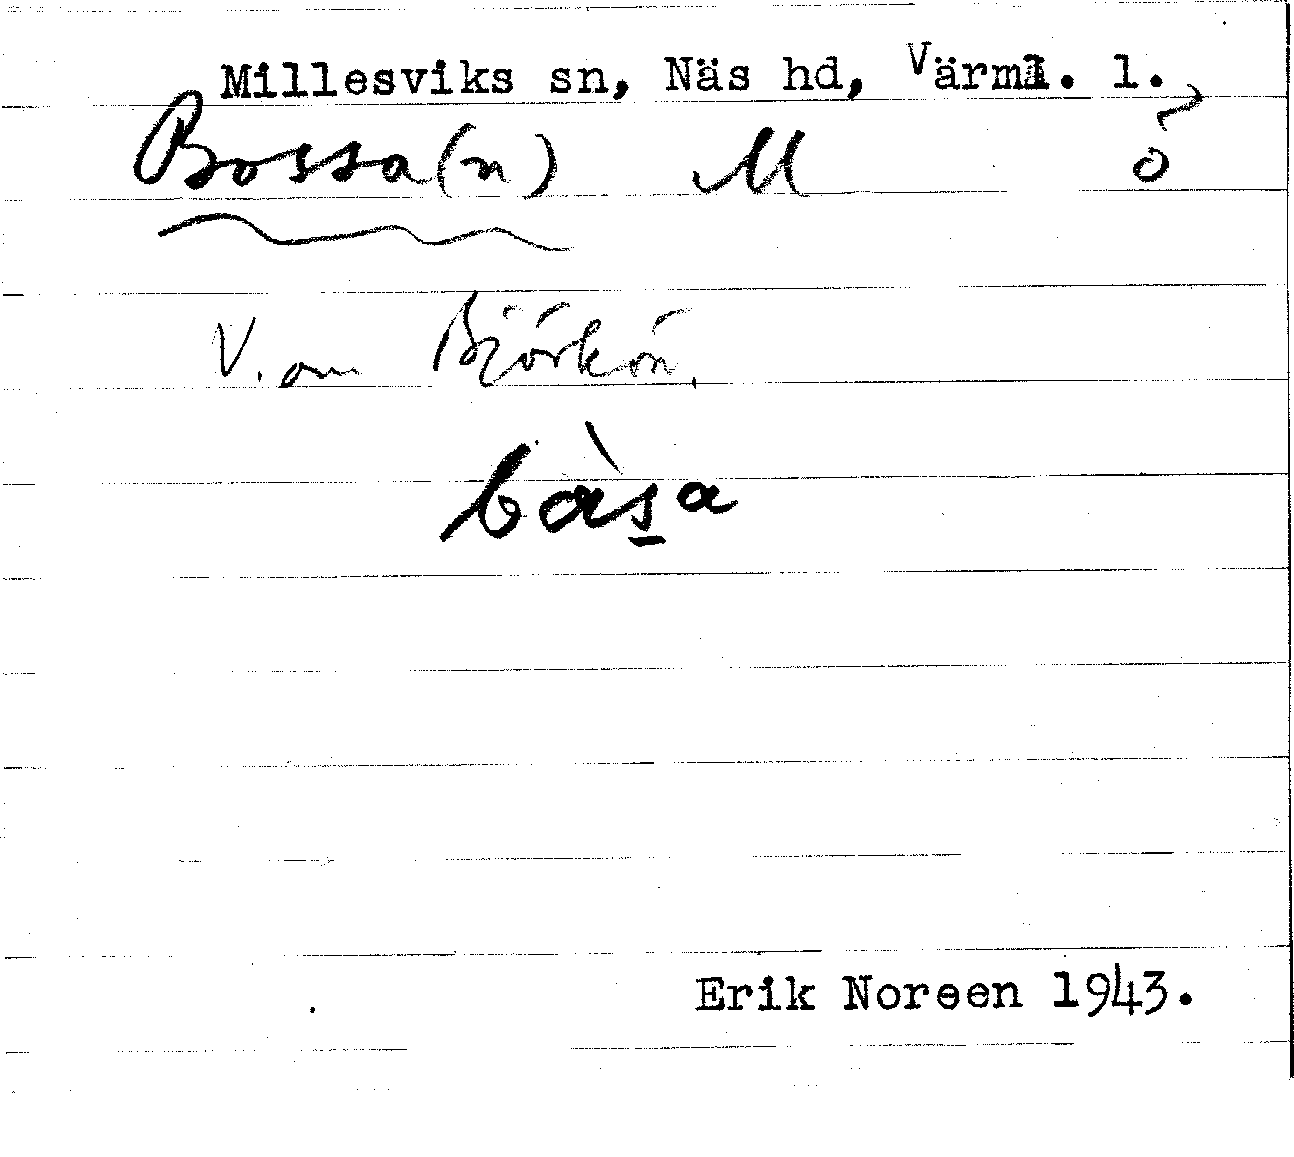 Millesviks sn, Näs hd, Värml. l.
Bossa(n) M ö
V. om Björkön.
bàsa
Erik Noreen 1943.